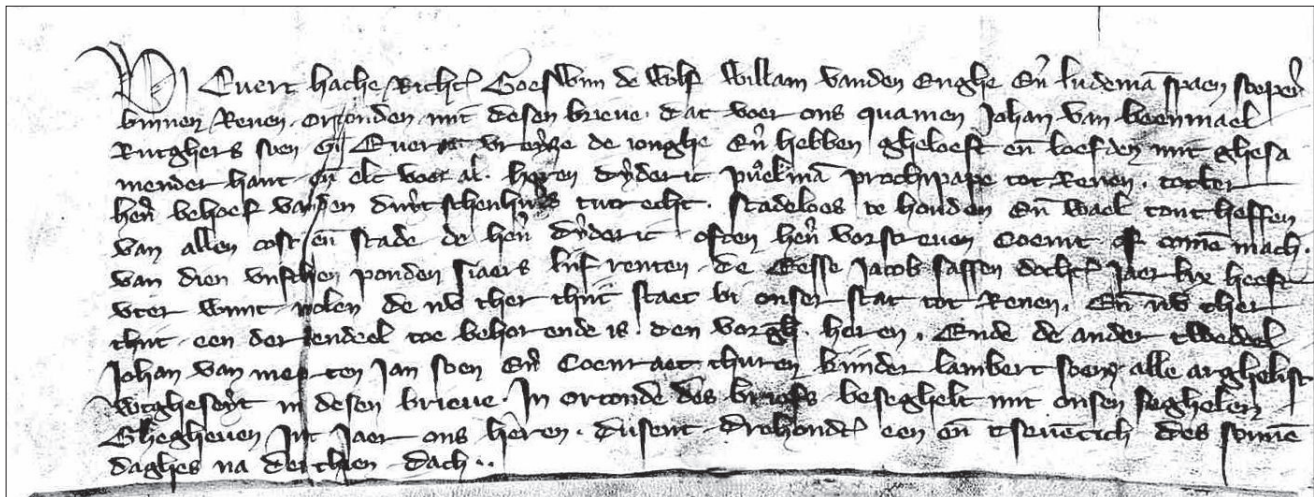 Wi Evert hache Richt Goeswin de wolf willam vanden Enghe En ludemā spaen scepen
binnen Renen orconden mit desen brieve dat voer ons quamen Johan van
Rutghers soen en Evert de ionghe En hebben gheloeft en loefden mit ghesa
mender hant en elc voer al heren dyderic prochipape tot Renen totter
hen behoef vanden tutrecht scadeloes te houden En wael tont heffen
van allen cost en scade de hen dyderic often hen vorscreven Coemt of comē mach
van dien viifthien ponden siaers liif renten de Gesse Jacob sassen docht Jaer lix heeft
vter wint molen de nv ther thiit staet bi onser stat tot Renen En nv ther
thiit een derdendeel toe behorende is den heren Ende de ander twedeel
Johan van Jan soen En Coenraet thuren kinder lambert soen alle arghelist
wtgheseyt in desen brieve In orconde des briefs beseghelt mit onsen seghelen
Ghegheven Int Jaer ons heren dusent driehondt een en tsevētich des sonnē
daghes na derthien dach